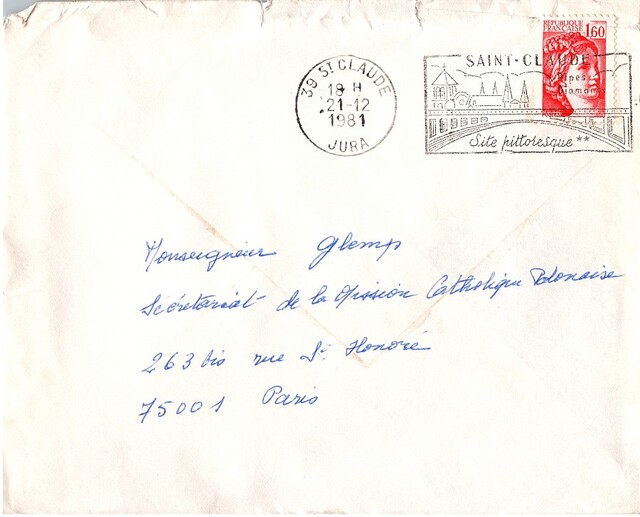 39 St CLAUDE
18 H
21-12
1981
JURA
REPUBLIQUE
FRANÇAISE
1,60
SAINT-CLAUDE
Pipes
Diamants
Site pittoresque **
Monseigneur Glemp
Sécrétariat de la Mission Catholique Polonaise
263 bis rue St Honoré
75001 Paris